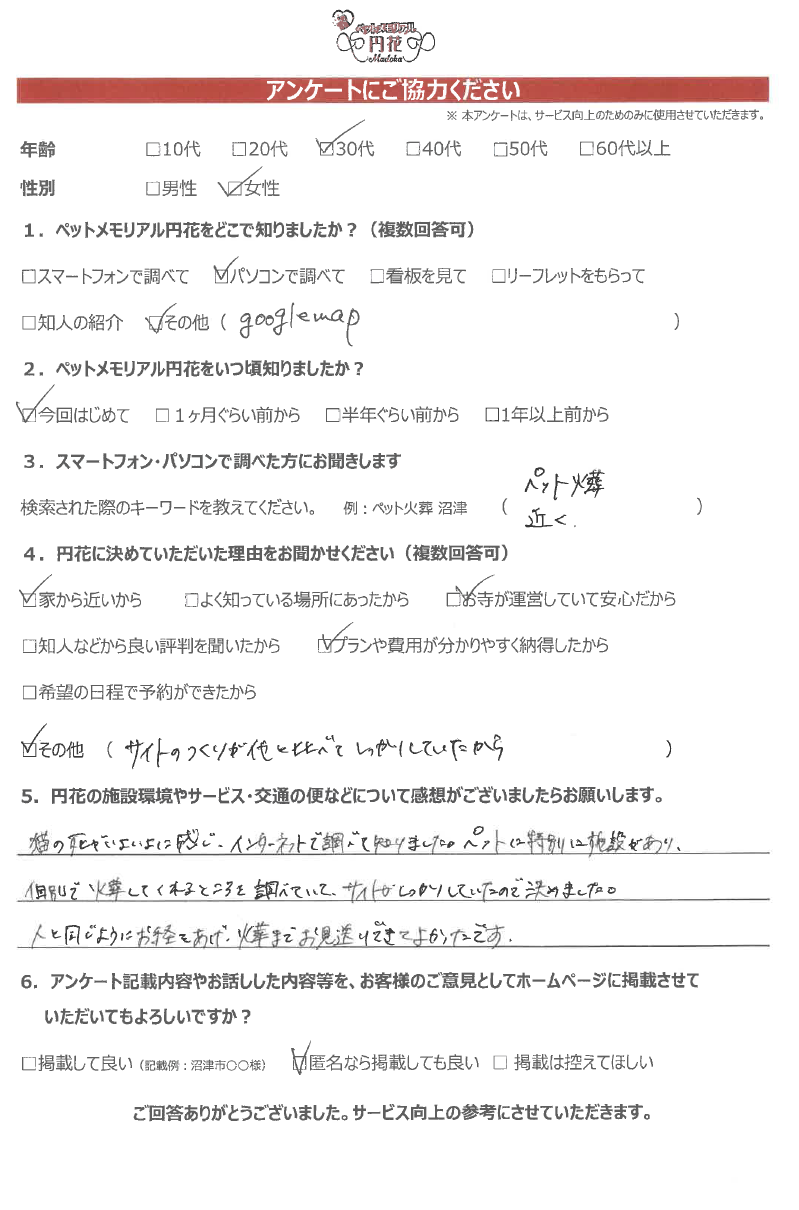 ペットメモリアル
円花
Madoka
アンケートにご協力ください
※ 本アンケートは、サービス向上のためのみに使用させていただきます。
年齢 □10代 □20代 ☑30代 □40代 □50代 □60代以上
性別 □男性 ☑女性
1．ペットメモリアル円花をどこで知りましたか？（複数回答可）
□スマートフォンで調べて ☑パソコンで調べて □看板を見て □リーフレットをもらって
□知人の紹介 ☑その他（ googlemap ）
2．ペットメモリアル円花をいつ頃知りましたか？
☑今回はじめて □1ヶ月ぐらい前から □半年ぐらい前から □1年以上前から
3．スマートフォン・パソコンで調べた方にお聞きします
検索された際のキーワードを教えてください。 例：ペット火葬 沼津 （ ペット火葬
近く. ）
4．円花に決めていただいた理由をお聞かせください（複数回答可）
☑家から近いから □よく知っている場所にあったから ☑お寺が運営していて安心だから
□知人などから良い評判を聞いたから ☑プランや費用が分かりやすく納得したから
□希望の日程で予約ができたから
☑その他 （ サイトのつくりが他と比べてしっかりしていたから ）
5．円花の施設環境やサービス・交通の便などについて感想がございましたらお願いします。
猫の死がいよいよに感じ、インターネットで調べて知りました。ペットに特別に施設があり、
個別で火葬してくれるところを調べていて、サイトがしっかりしていたので決めました。
人と同じようにお経をあげ、火葬までお見送りできてよかったです.
6．アンケート記載内容やお話しした内容等を、お客様のご意見としてホームページに掲載させて
いただいてもよろしいですか？
□掲載して良い（記載例：沼津市〇〇様） ☑匿名なら掲載しても良い □ 掲載は控えてほしい
ご回答ありがとうございました。サービス向上の参考にさせていただきます。